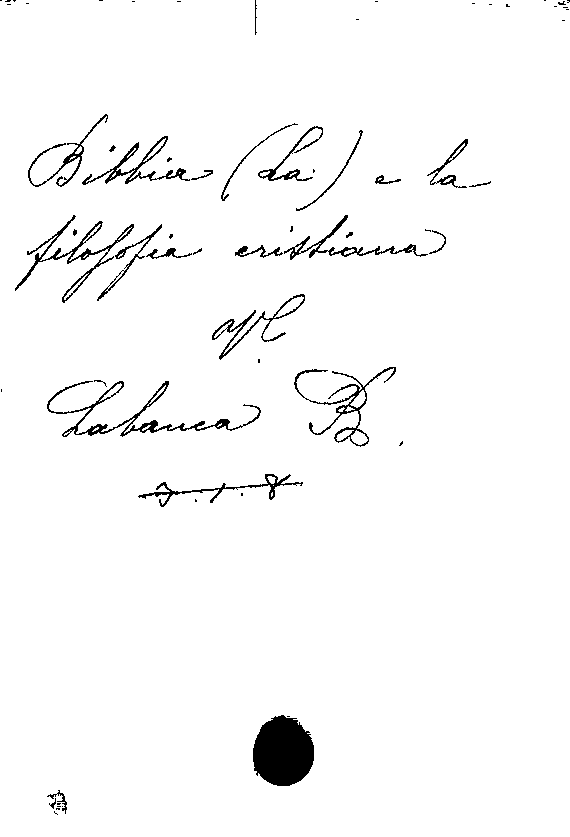 Bibbia (La) e la
filosofia cristiana
Labanca B.
3.1.8